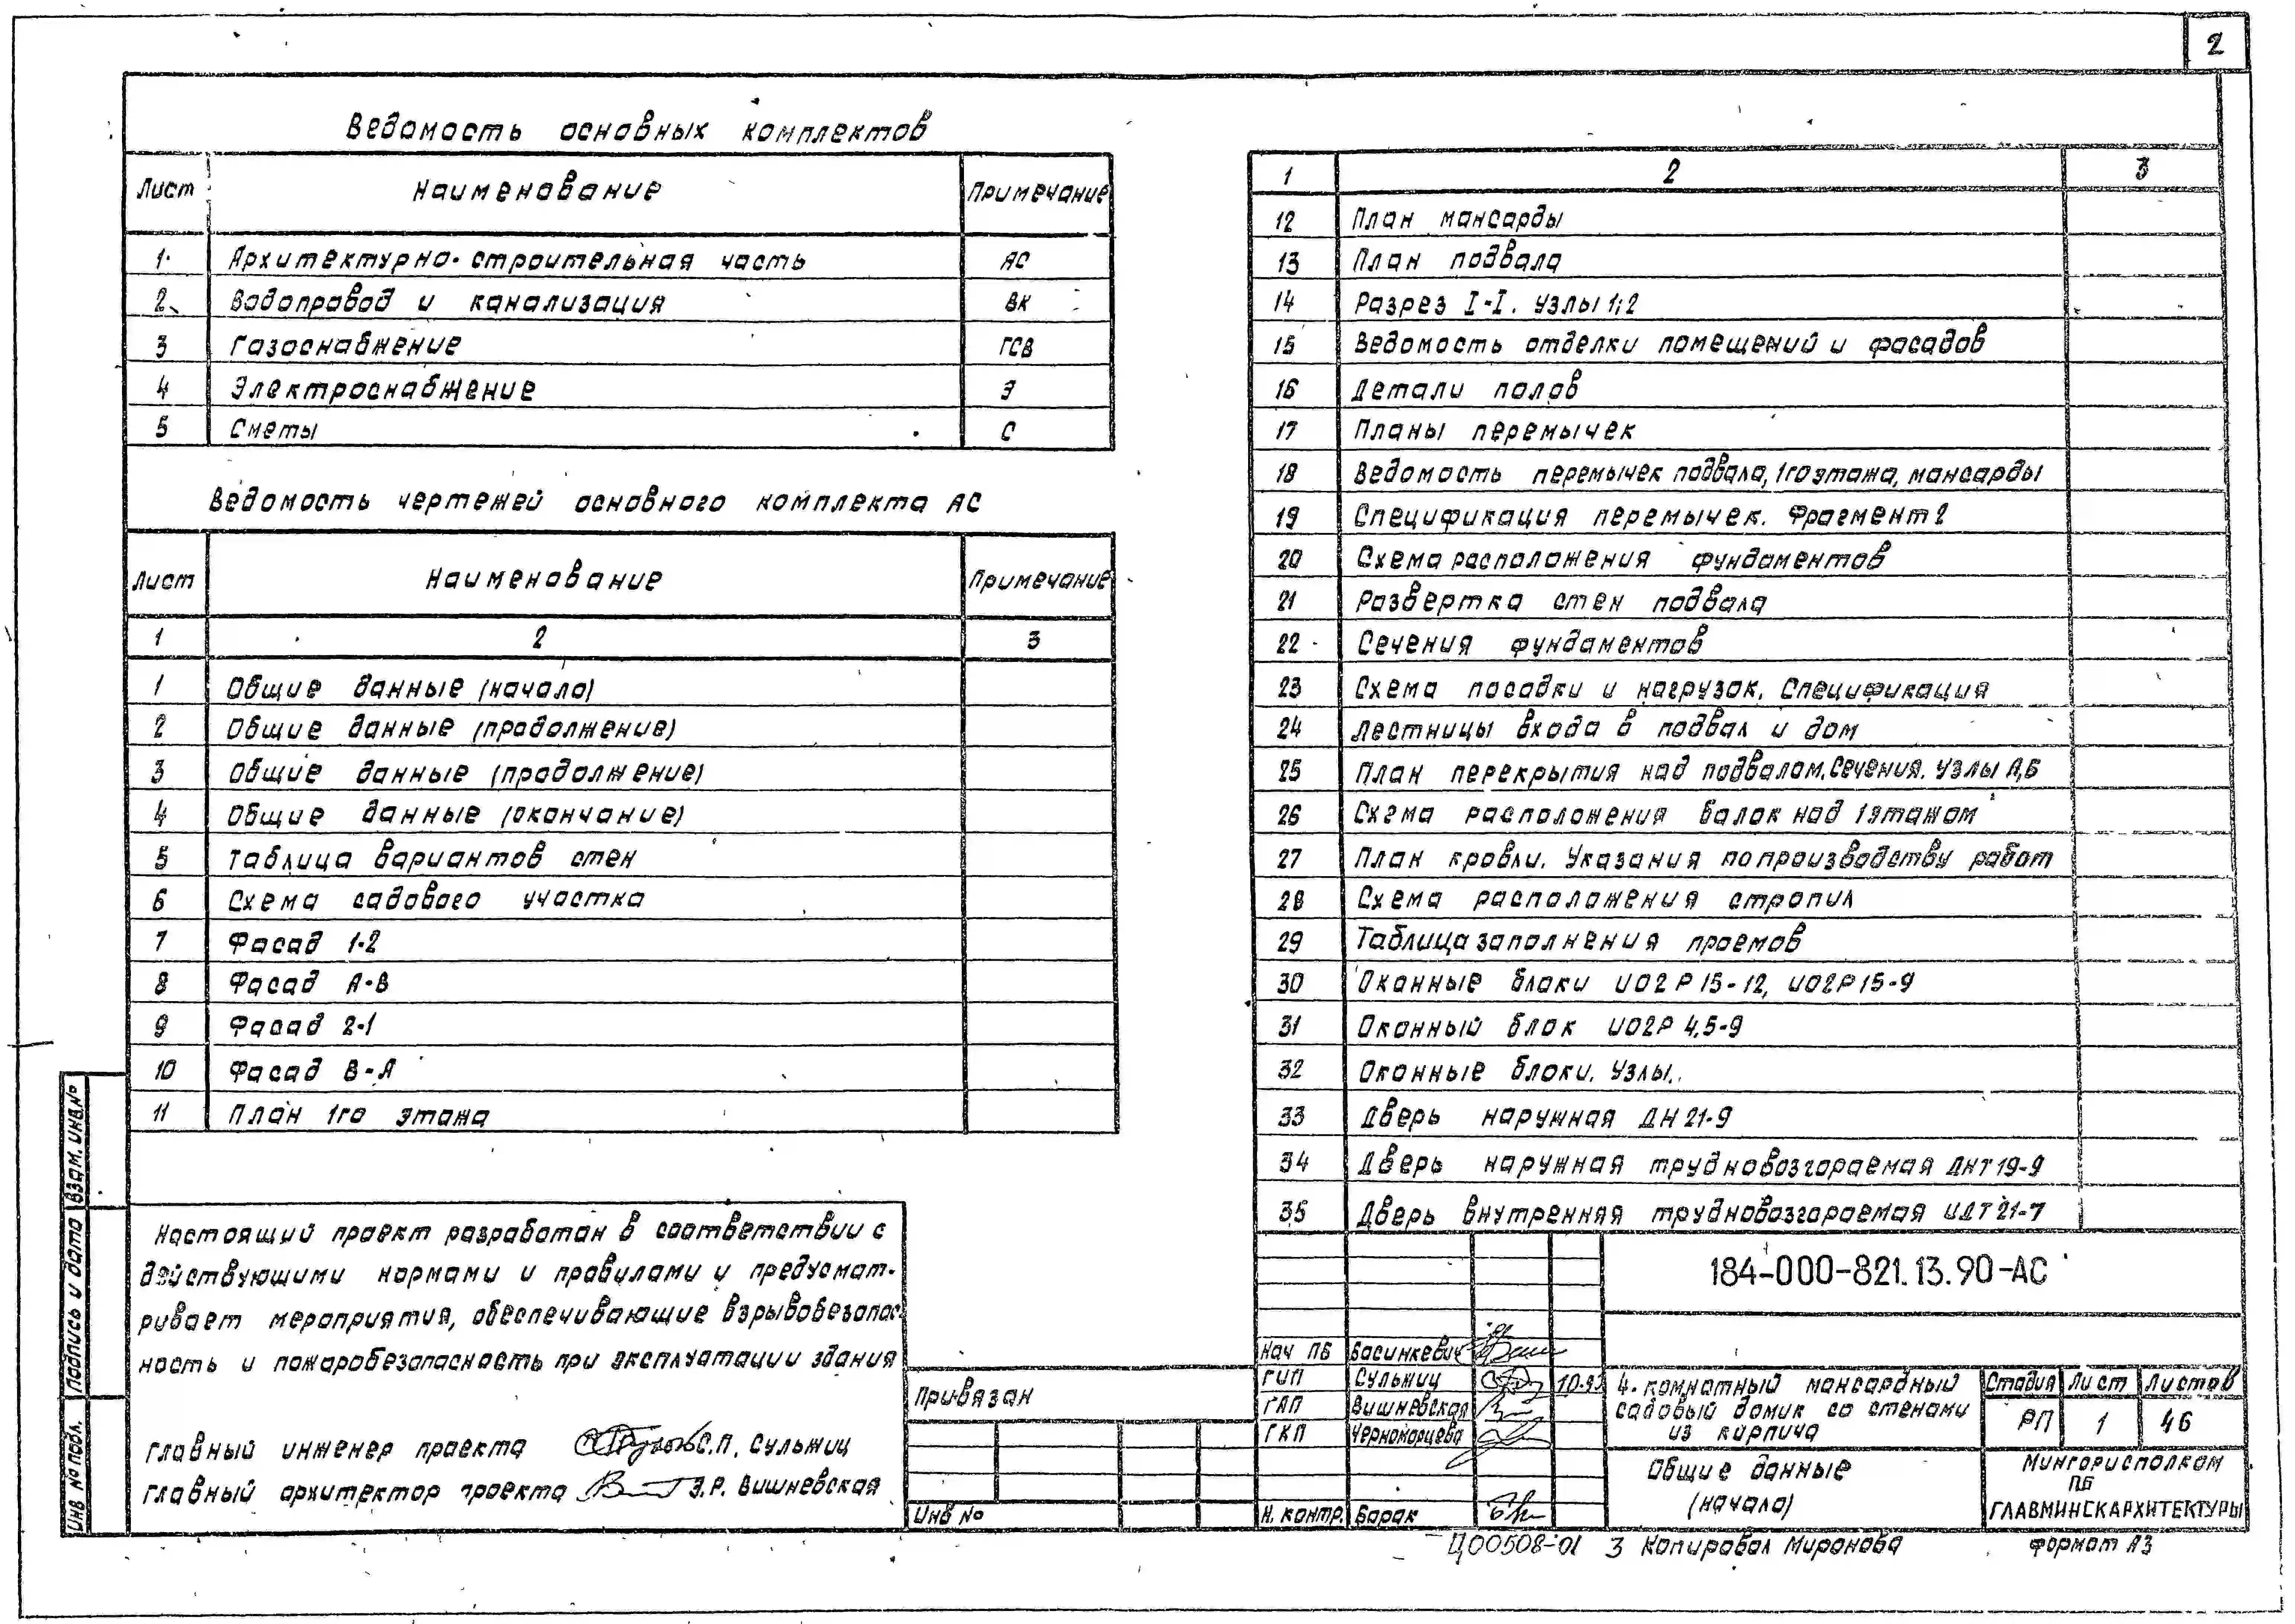 2
Ведомость основных комплектов
Лист Наименование Примечание
1 Архитектурно-строительная часть АС
2 Водопровод и канализация ВК
3 Газоснабжение ГСВ
4 Электроснабжение Э
5 Сметы С
Ведомость чертежей основного комплекта АС
Лист Наименование Примечание
1 2 3
1 Общие данные (начало)
2 Общие данные (продолжение)
3 Общие данные (продолжение)
4 Общие данные (окончание)
5 Таблица вариантов стен
6 Схема садового участка
7 Фасад 1-2
8 Фасад А-В
9 Фасад 2-1
10 Фасад В-А
11 План 1го этажа
1 2 3
12 План мансарды
13 План подвала
14 Разрез I-I. Узлы 1;2
15 Ведомость отделки помещений и фасадов
16 Детали полов
17 Планы перемычек
18 Ведомость перемычек подвала, 1го этажа, мансарды
19 Спецификация перемычек. Фрагмент 2
20 Схема расположения фундаментов
21 Развертка стен подвала
22 Сечения фундаментов
23 Схема посадки и нагрузок. Спецификация
24 Лестницы входа в подвал и дом
25 План перекрытия над подвалом. Сечения. Узлы А,Б
26 Схема расположения балок над 1 этажом
27 План кровли. Указания по производству работ
28 Схема расположения стропил
29 Таблица заполнения проемов
30 Оконные блоки ИО2Р 15-12, ИО2Р 15-9
31 Оконный блок ИО2Р 4,5-9
32 Оконные блоки. Узлы.
33 Дверь наружная ДН 21-9
34 Дверь наружная трудновозгораемая ДНТ 19-9
35 Дверь внутренняя трудновозгораемая ИДТ 21-7
Настоящий проект разработан в соответствии с
действующими нормами и правилами и предусмат-
ривает мероприятия, обеспечивающие взрывобезопас-
ность и пожаробезопасность при эксплуатации здания
Главный инженер проекта С.П. Сульжиц
Главный архитектор проекта Э.Р. Вишневская
Привязан
Инв №
184-000-821.13.90-АС
Нач ПБ Басинкевич
ГИП Сульжиц
ГАП Вишневская
ГКП Черноморцева
Н. контр. Барак
4-комнатный мансардный
садовый домик со стенами
из кирпича
Стадия Лист Листов
РП 1 46
Общие данные
(начало)
Мингорисполком
ПБ
ГЛАВМИНСКАРХИТЕКТУРЫ
Ц00508-01 3 Копировал Миронова Формат А3
Инв № подл. Подпись и дата Взам. инв. №